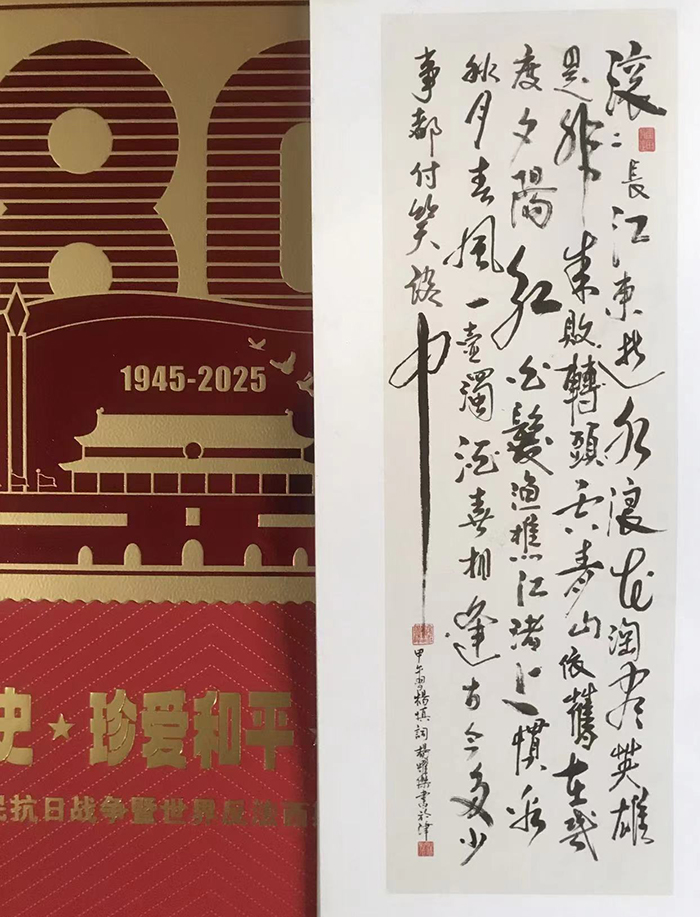 80
1945-2025
史★珍爱和平
民抗日战争暨世界反法西
滚〻長江東逝水浪花淘尽英雄
是非成敗轉頭空青山依舊在幾
度夕陽红白髮漁樵江渚上慣看
秋月春風一壺濁酒喜相逢古今多少
事都付笑談中
甲午楊慎詞楊書於津